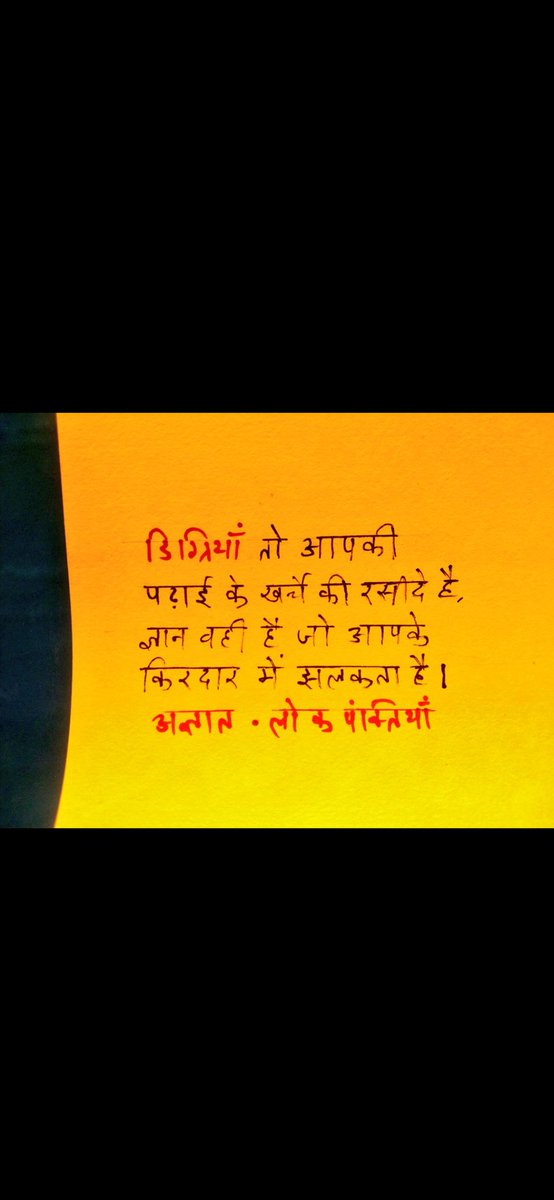 डिग्रियाँ तो आपकी
पढ़ाई के खर्चे की रसीदे है,
ज्ञान वही है जो आपके
किरदार में झलकता है।
अज्ञात · लोक पंक्तियाँ